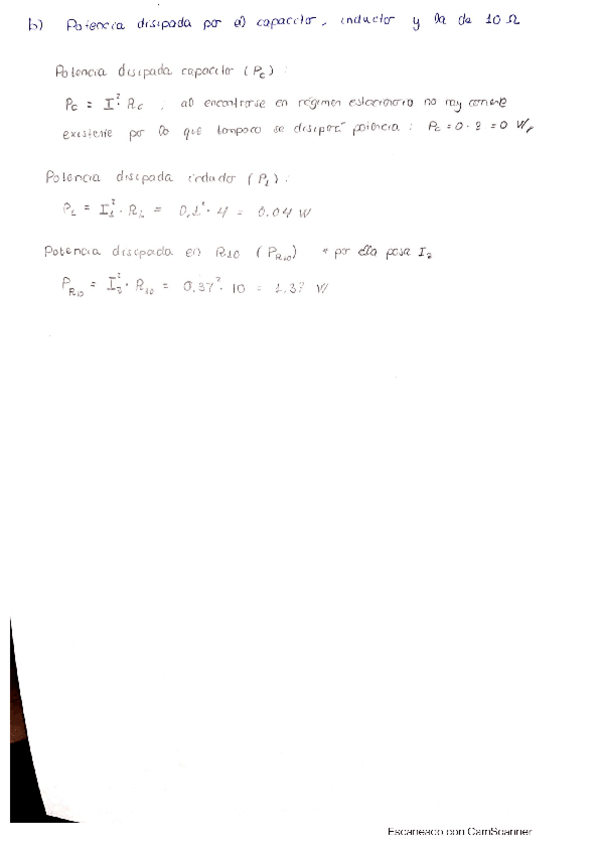 b) Potencia disipada por el capacitor, inductor y la de 10 Ω
Potencia disipada capacitor (Pc) :
Pc = I² · Rc ; al encontrarse en régimen estacionario no hay corriente
existente por lo que tampoco se disipará potencia : Pc = 0 · ? = 0 W
Potencia disipada inductor (PL) :
PL = I₁² · RL = 0,1² · 4 = 0.04 W
Potencia disipada en R10 (PR10) * por ella pasa I₂
PR10 = I₂² · R10 = 0,37² · 10 = 1,37 W
Escaneado con CamScanner